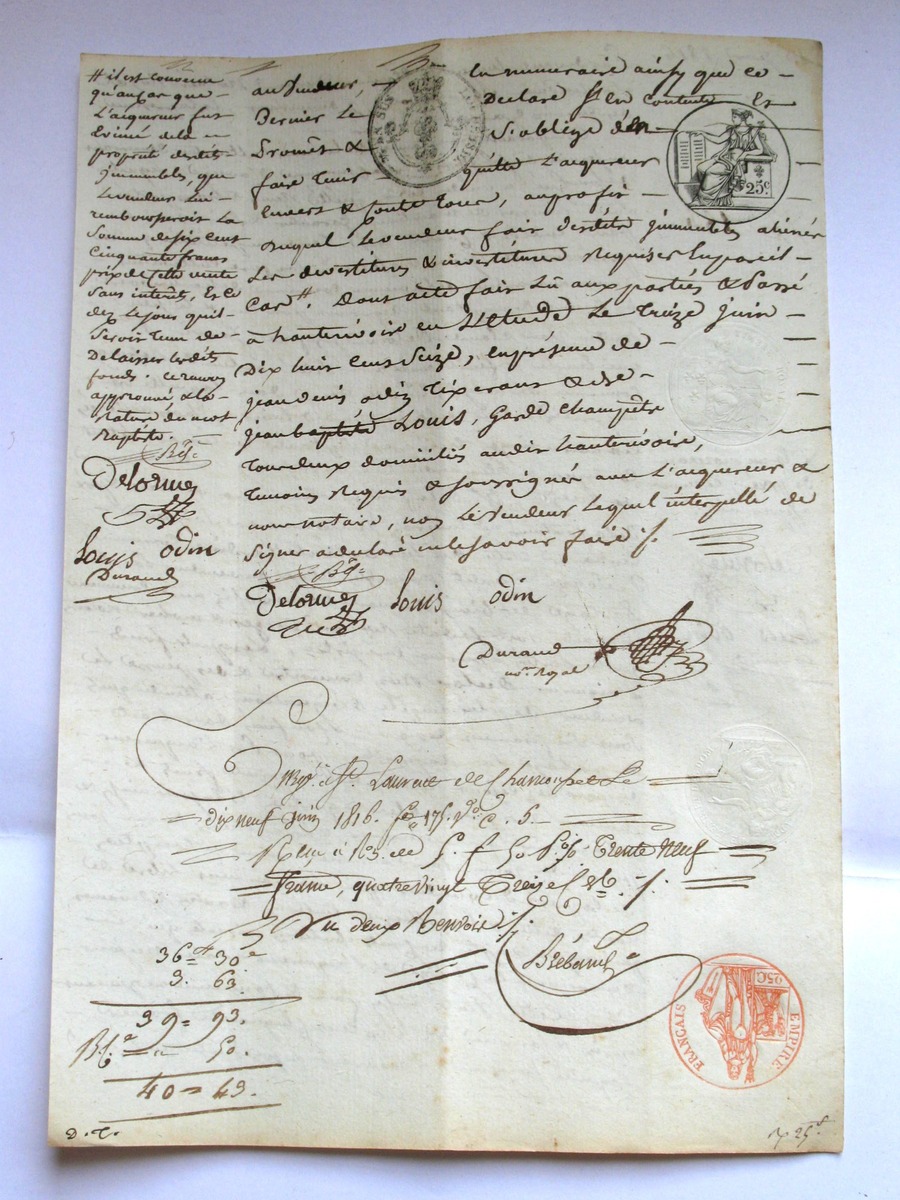 # il est convenu
qu'au cas que
L'aquereur fut
Evincé de la
propriété desdits
jimmeubles, que
Le vendeur lui
rembourseroit La
Somme de six cent
Cinquante francs
prix de Cette vente
Sans interets, Et Ce
dez Le jour quil
Seroit Tenu de
Delaisser Lesdits
fonds. Ce renvoy
approuvé & la
rature du mot
Baptiste.
Delorme
Louis odin
Durand
au vendeur, En numeraire ainsy que ce
Dernier Le Declare Sen Contente Et
Promet & S'oblege den
faire Tenir quitte L'aquereur
Envers & Contre Tous, au profit
Duquel Levendeur fait desdits jimmeubles alienés
Les devestitures & investitures Requises En pareil
Cas #. Dont acte fait Lû aux parties & Passé
a hauterivoire en L'Etude Le Treize juin
Dix huit Cent Seize, En présence de
jean denis odin Tixerant & de
jean baptiste Louis, Garde Champêtre
Tous deux domiciliés audit hauterivoire,
Temoins Requis & Soussignés avec L'aquereur &
nous notaire, non Le vendeur Lequel interpellé de
Signer a declaré ne le Savoir faire /.
Delorme Louis odin
Durand
nore. Royal
St. Laurent de Chamousset Le
dix neuf juin 1816. fo. 175. Vo. C. 5.
Trente Neuf
francs, quatre vingt Treize
Vu deux Renvois /.
36 = 30
3. 63
39 = 93.
50.
40 = 43.
D. T.
25c.
25C
EMPIRE FRANCAIS